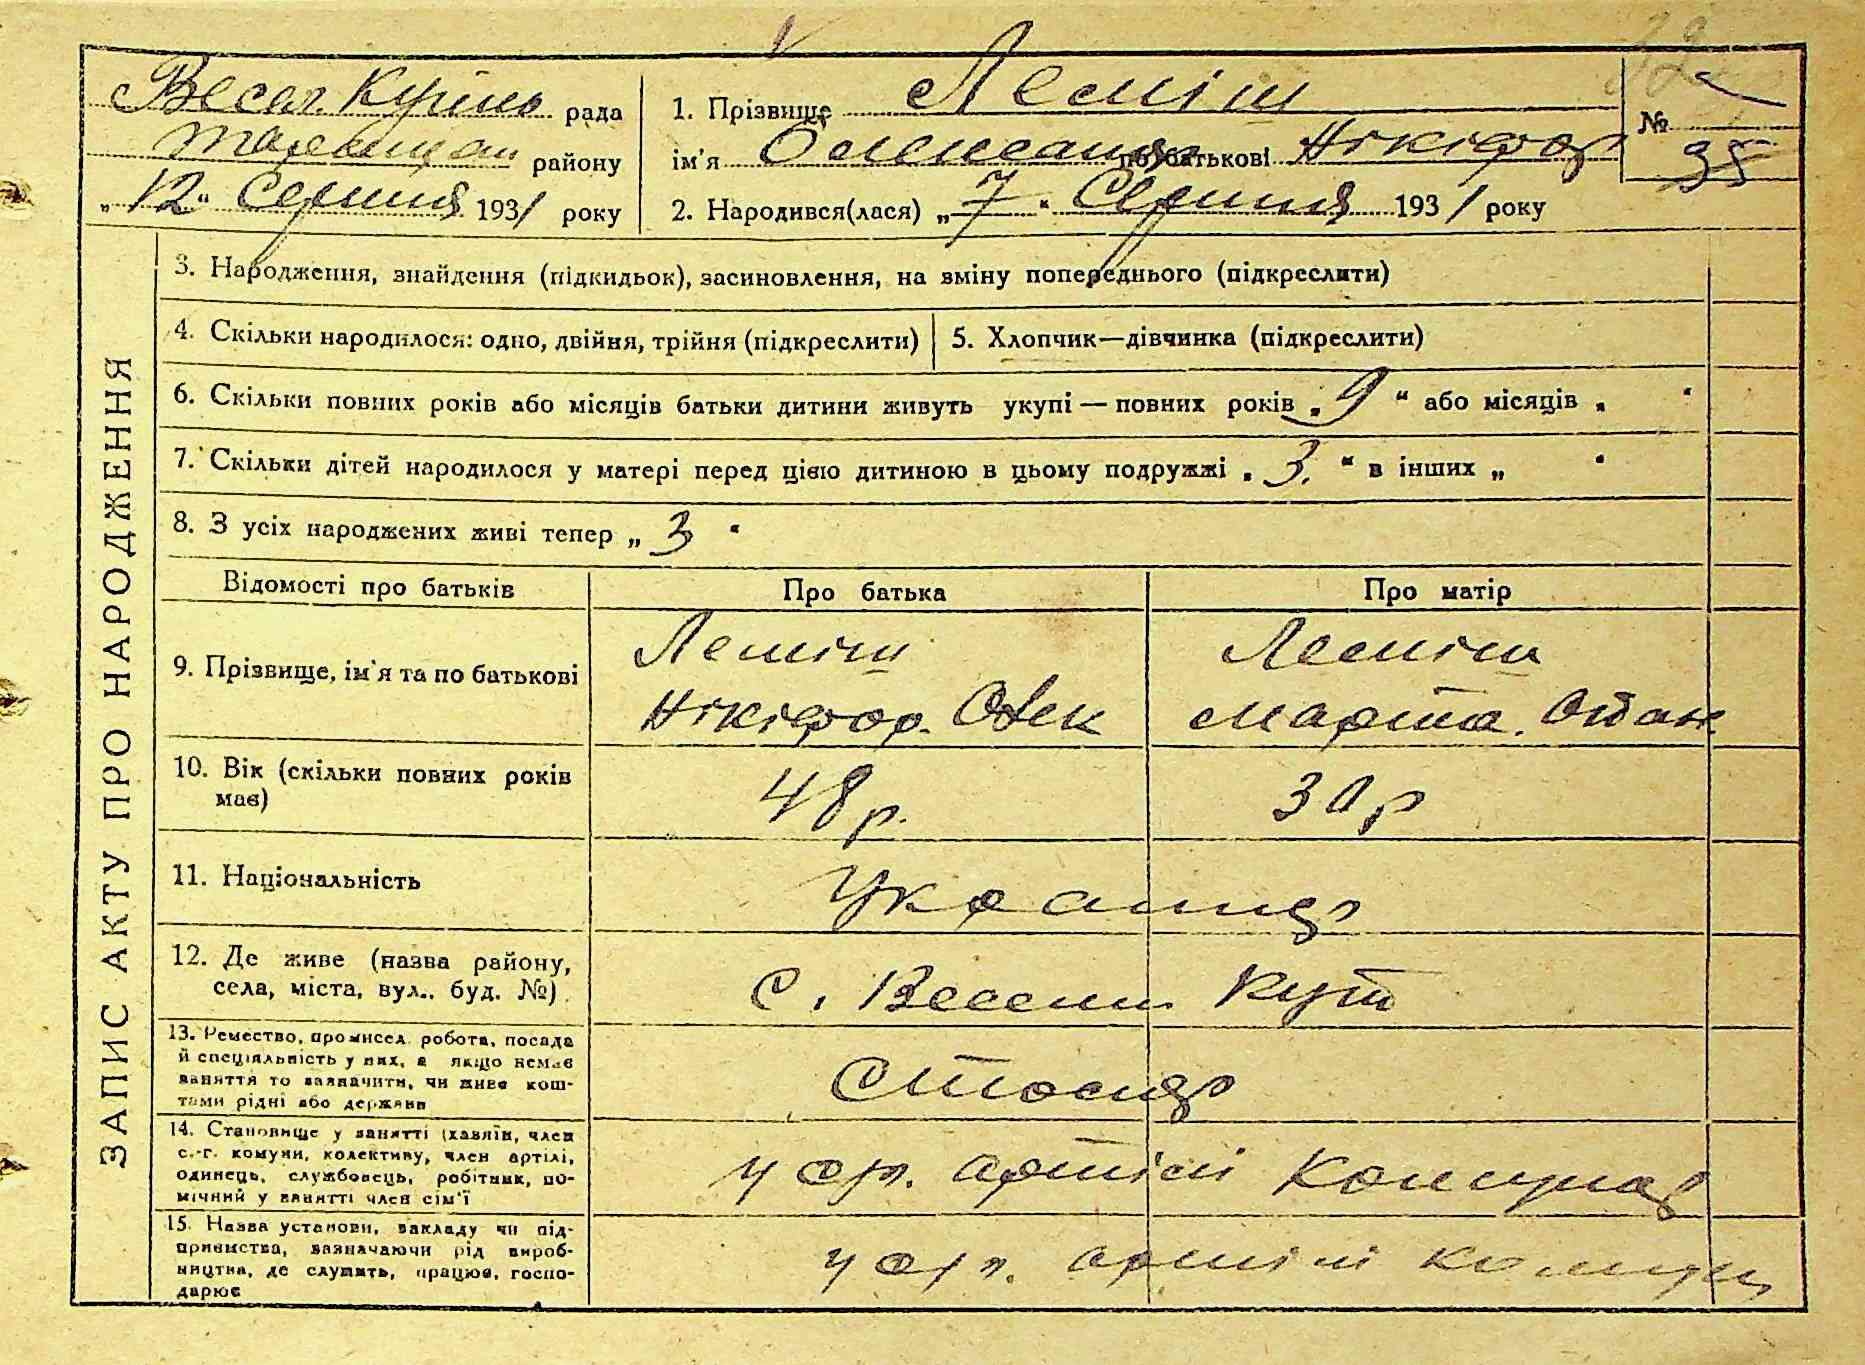 Весел. Курінь рада
Таращан району
„12“ Серпня 1931 року
1. Прізвище Леміш
ім'я Олександр по батькові Нікіфор
№ 35
2. Народився(лася) „7“ Серпня 1931 року
ЗАПИС АКТУ ПРО НАРОДЖЕННЯ
3. Народження, знайдення (підкидьок), засиновлення, на зміну попереднього (підкреслити)
4. Скільки народилося: одно, двійня, трійня (підкреслити)
5. Хлопчик—дівчинка (підкреслити)
6. Скільки повних років або місяців батьки дитини живуть укупі — повних років „9“ або місяців „ “
7. Скільки дітей народилося у матері перед цією дитиною в цьому подружжі „3.“ в інших „ “
8. З усіх народжених живі тепер „3“
Відомості про батьків
Про батька
Про матір
9. Прізвище, ім'я та по батькові
Леміш
Нікіфор.
Леміш
Марта.
10. Вік (скільки повних років
має)
48 р.
30 р
11. Національність
Украінц
12. Де живе (назва району,
села, міста, вул.. буд. №)
с. Весели Кут
13. Ремество, промисел, робота, посада
й спеціяльність у них, а якщо немає
заняття то зазначити, чи живе кош-
тами рідні або держави
Столяр
14. Становище у занятті (хазяїн, член
с.-г. комуни, колективу, член артілі,
одинець, службовець, робітник, по-
мічний у занятті член сім'ї
артілі Комунар
15. Назва установи, закладу чи під-
приємства, зазначаючи рід вироб-
ництва, де служить, працює, госпо-
дарює
артілі комун